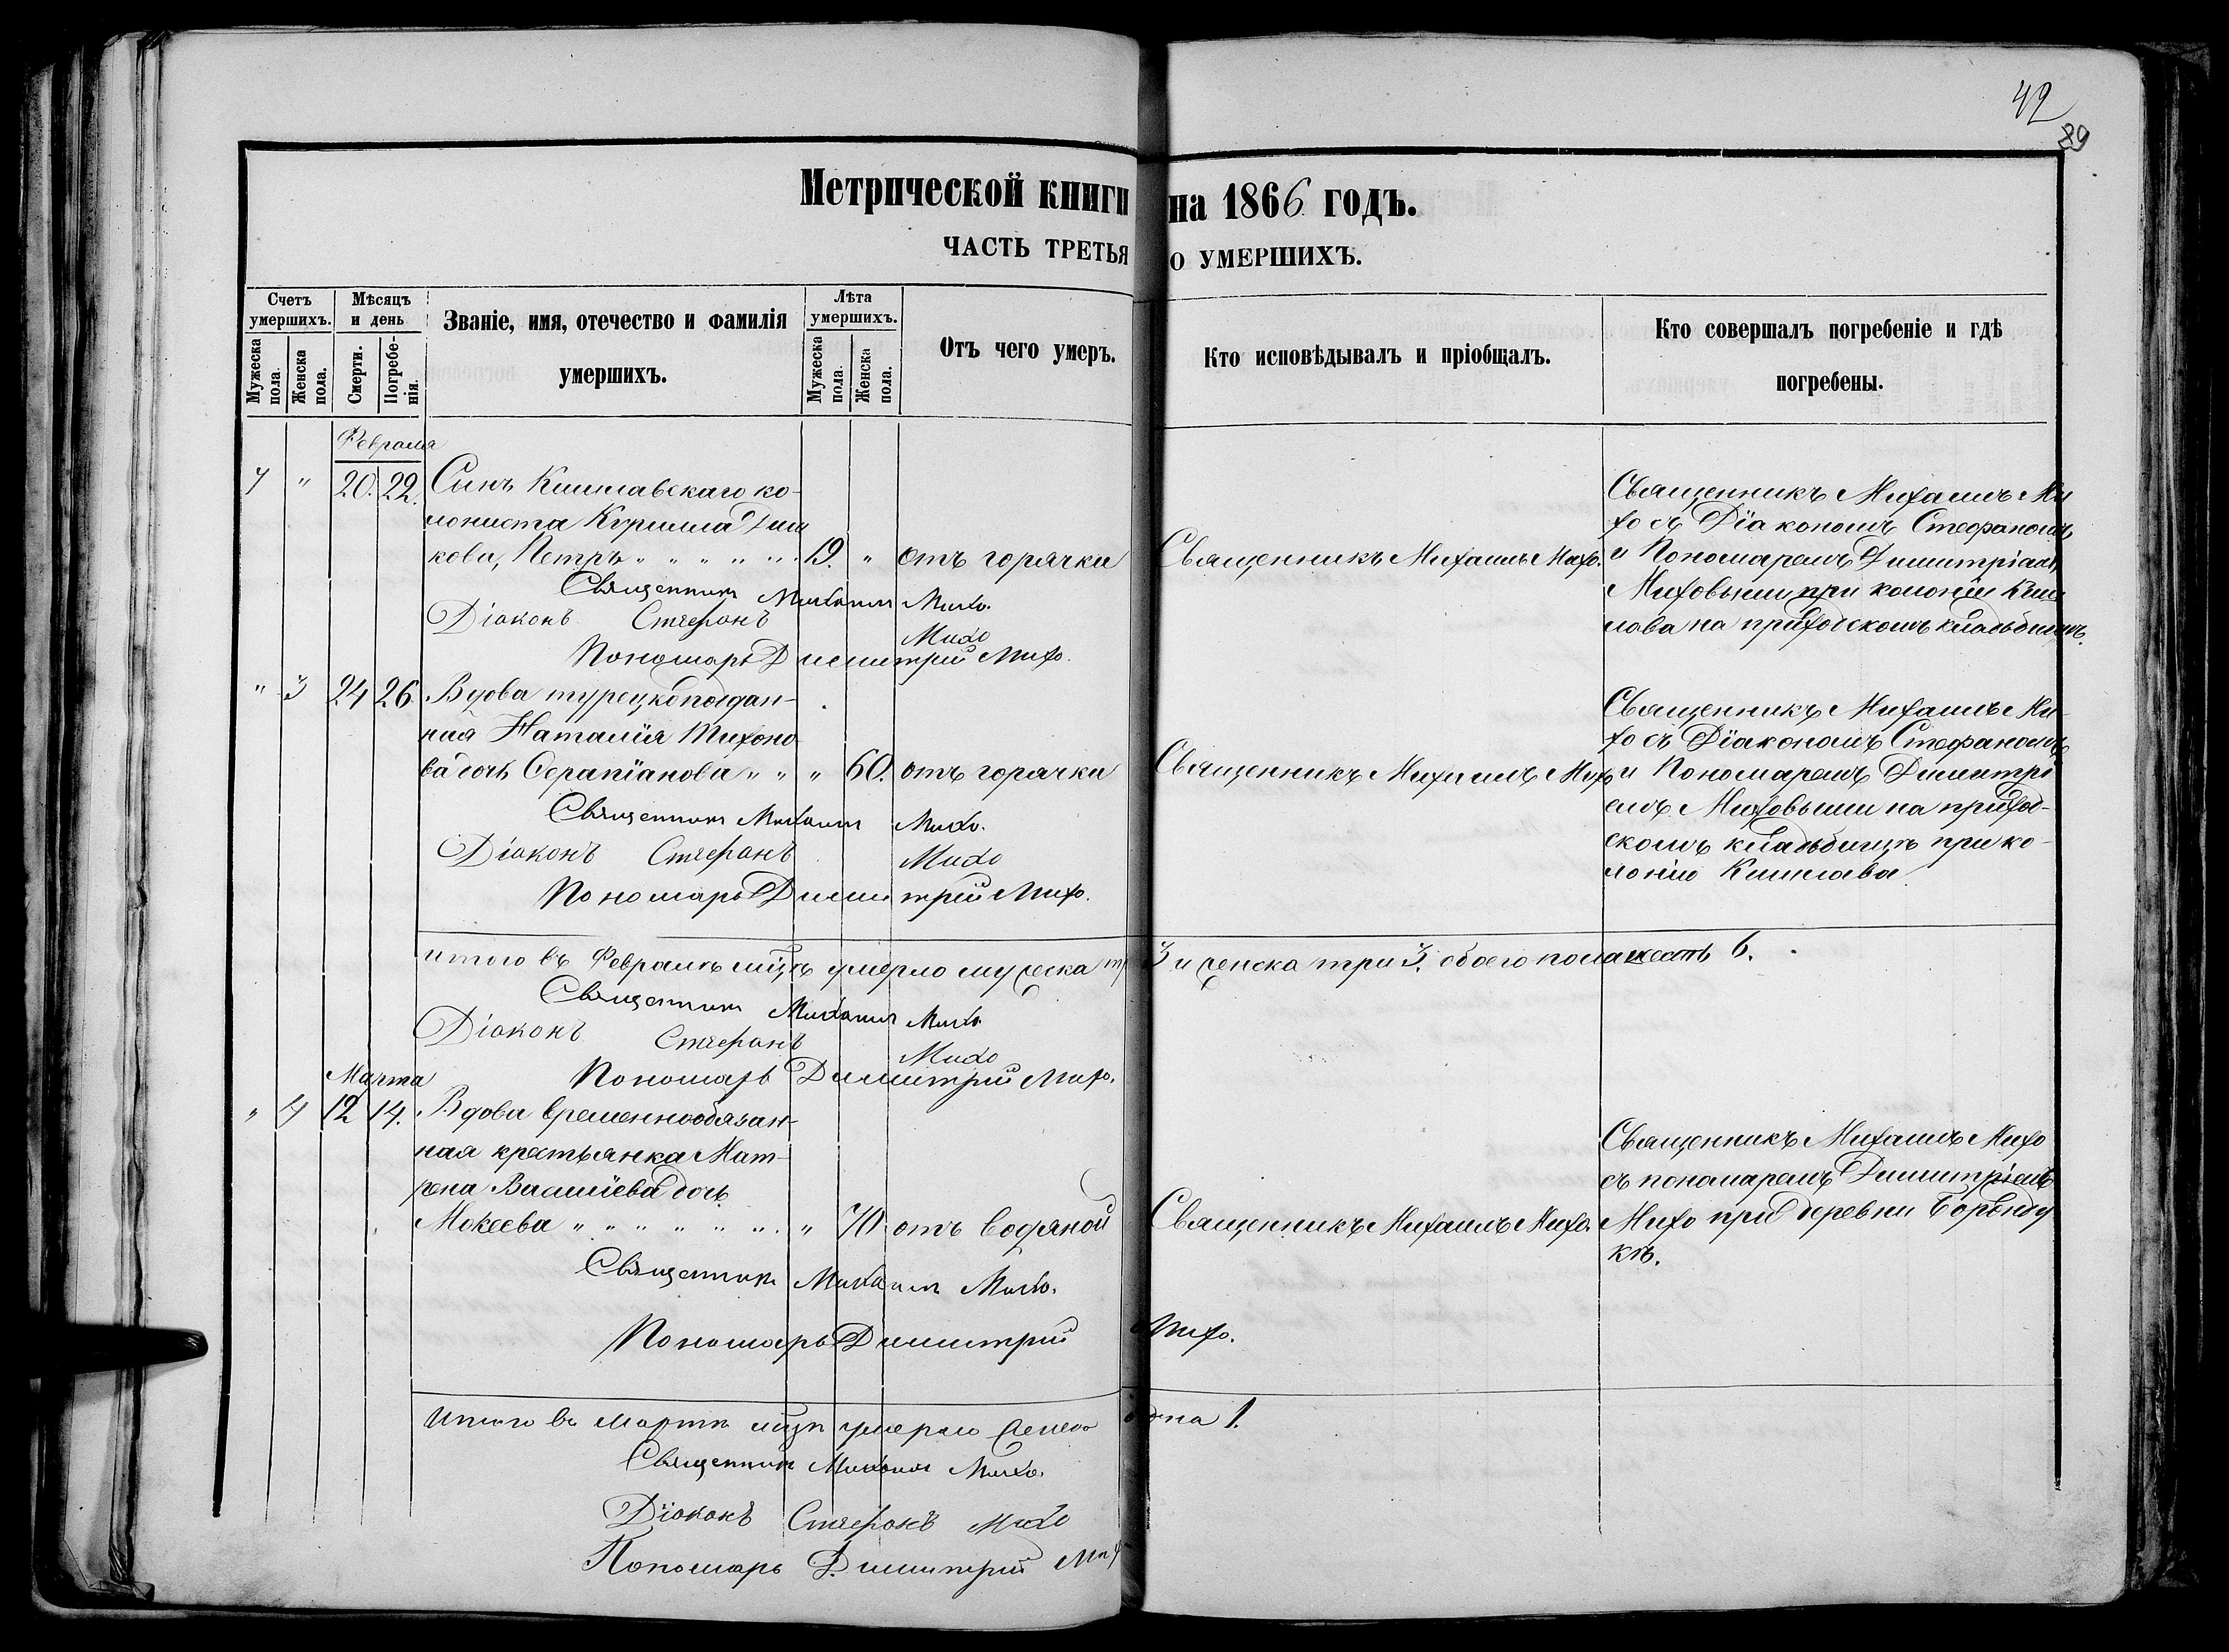 42
89
Метрической книги на 1866 годъ.
ЧАСТЬ ТРЕТЬЯ О УМЕРШИХЪ.
Счетъ умершихъ.
Мужеска пола.
Женска пола.
Мѣсяцъ и день
Смерти.
Погребенія.
Званіе, имя, отечество и фамилія
умершихъ.
Лѣта умершихъ.
Мужеска пола.
Женска пола.
Отъ чего умеръ.
Кто исповѣдывалъ и пріобщалъ.
Кто совершалъ погребеніе и гдѣ
погребены.
Февраля
" 20. 22. Сынъ Кишлавскаго ко-
лониста Кирилла
кова, Петръ " " " " " 19. " отъ горячки
Священникъ Михаилъ Михо.
Священникъ Михаилъ Ми
хо съ Діакономъ Стефаномъ
и Пономаремъ Димитріемъ
Миховыми при колоніи Киш
лава на приходскомъ кладбищѣ.
Священник Михаил Михо.
Діаконъ Стефанъ Михо
Пономарь Димитрій Михо.
" 3 24 26 Вдова турецкоподдан-
ная Наталія Тихоно
ва дочь Серапіанова " " " 60. отъ горячки
Священникъ Михаилъ Михо
Священникъ Михаилъ Ми-
хо съ Діакономъ Стефаномъ
и Пономаремъ Димитрі
емъ Миховыми на приход-
скомъ кладбищѣ при ко-
лоніи Кишлава.
Священник Михаил Михо.
Діаконъ Стефанъ Михо
Пономарь Димитрій Михо.
итого въ Февралѣ мцѣ умерло мужеска 3 и женска три 3. обоего пола шесть 6.
Священник Михаил Михо
Діаконъ Стефанъ Михо
Пономарь Димитрій Михо.
Марта
" 4 12 14. Вдова временнообязан-
ная крестьянка Мат-
рена Василіева дочь
Мокеева " " " " " " " 70 отъ водяной
Священникъ Михаилъ Михо.
Священникъ Михаилъ Михо
съ пономаремъ Димитріемъ
Михо при деревни
кѣ.
Священник Михаил Михо.
Пономарь Димитрій Михо.
Итого въ Мартѣ мцѣ умерло женска одна 1.
Священник Михаил Михо.
Діаконъ Стефанъ Михо
Пономарь Димитрій